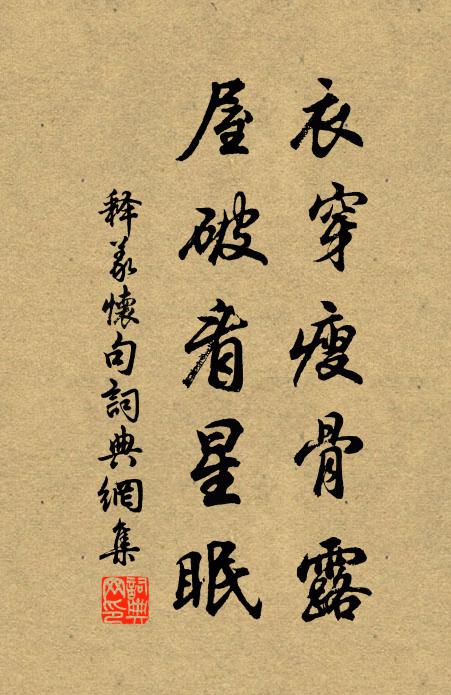 衣穿瘦骨露
屋破看星眠
释義懷句詞典網集
詞典網印